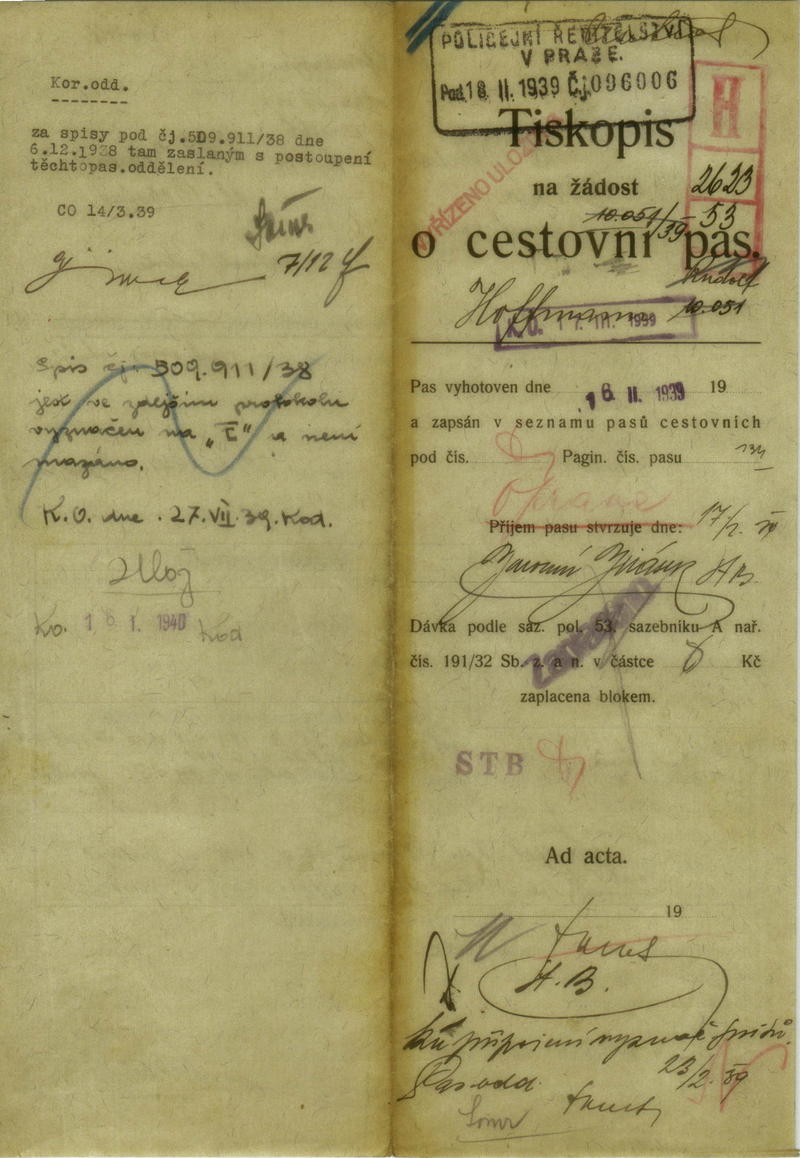 Kor.odd.
za spisy pod čj.509.911/38 dne
6.12.1938 tam zaslaným s postoupení
těchtopas.oddělení.
CO 14/3.39
7/12
Spis čj. 509.911/38
jest ve zdejším protokolu
vyznačen na „E“ a není
mazáno.
K.O. dne . 27.VII.39. Kod.
Ko. 16 I. 1940 Kod
POLICEJNÍ ŘEDITELSTVÍ
V PRAZE.
Pod. 18 II. 1939 Čj. 096006
H
Tiskopis
VYŘÍZENO ULOŽ
na žádost
2623
10.051/39 53
o cestovní pas.
Hoffmann Rudolf
10.051
K.O. 17. III. 1939
Pas vyhotoven dne 16 II. 1939 19
a zapsán v seznamu pasů cestovních
pod čís. Pagin. čís. pasu
Příjem pasu stvrzuje dne: 17/2.
Dávka podle saz. pol. 53. sazebníku A nař.
čís. 191/32 Sb. z. a n. v částce Kč
zaplacena blokem.
STB
Ad acta.
19
H. B.
Ku připojení
Pas odd. 23/2. 39